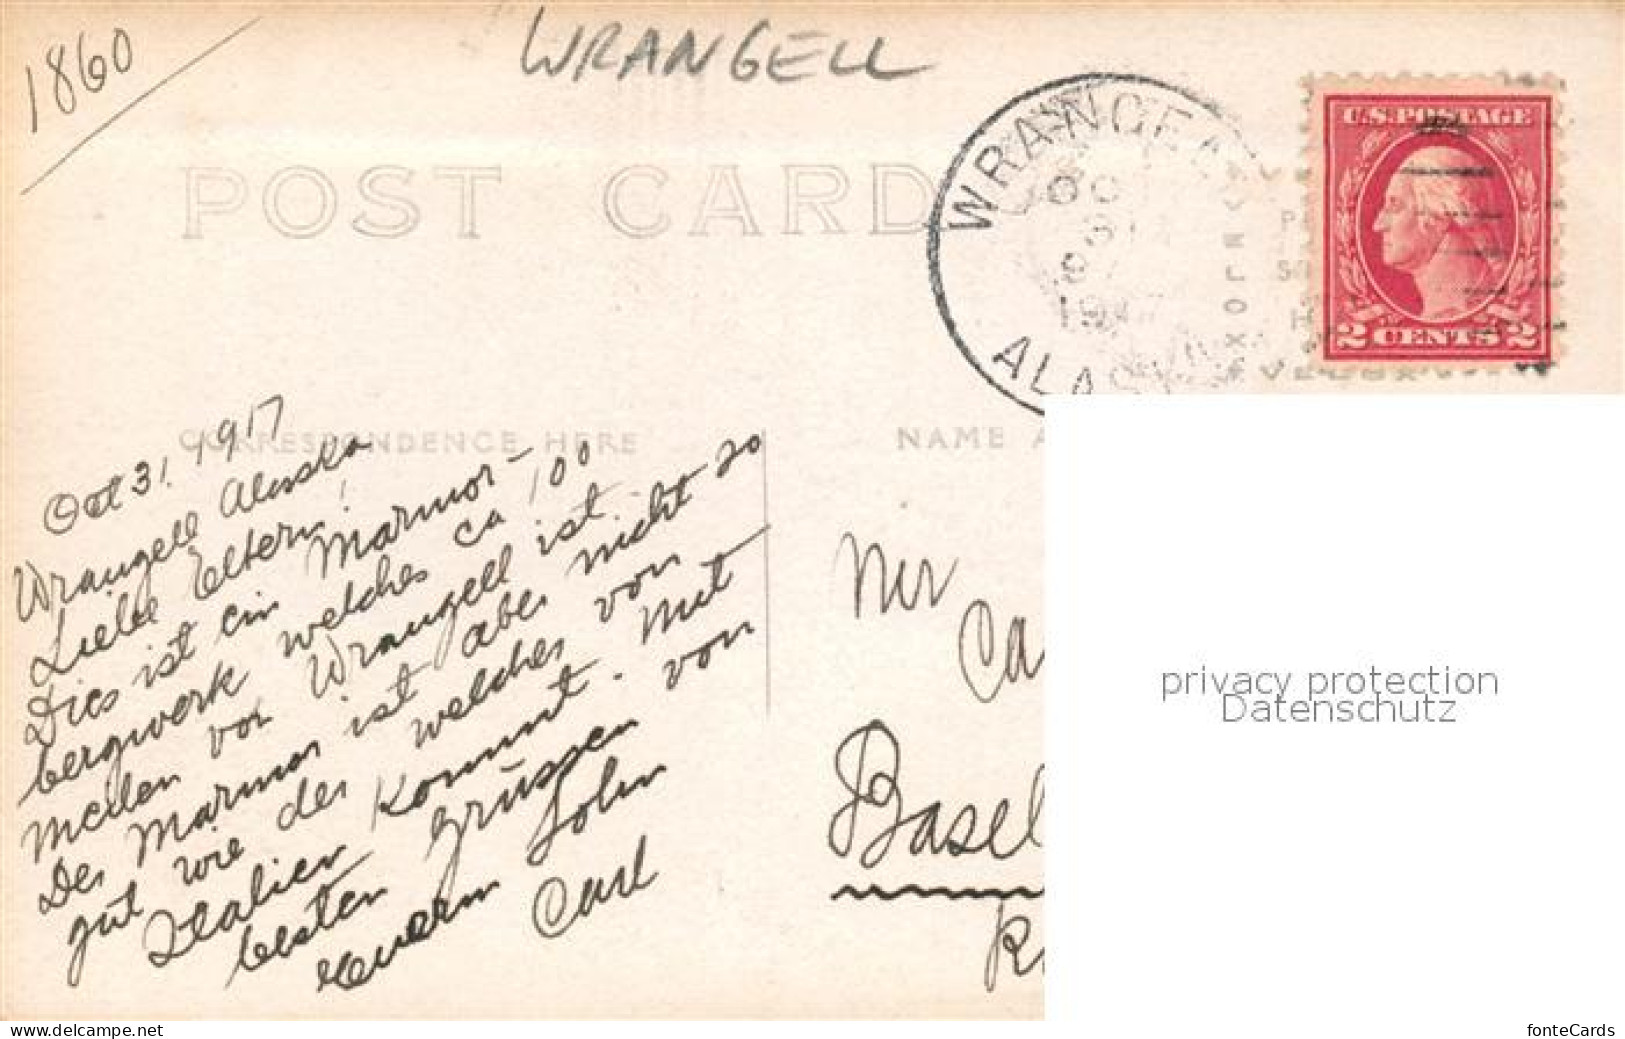 1860
WRANGELL
POST CARD
WRANGELL
OC
31
ALAS
U.S. POSTAGE
2 CENTS 2
CORRESPONDENCE HERE
NAME A
Oct 31. 1917
Wrangell Alaska
Liebe Eltern!
Dies ist ein Marmor-
bergwerk welches ca 100
meilen von Wrangell ist.
Der Marmor ist aber nicht so
gut wie der welcher von
Italien kommt. Mit
besten Grüssen von
Euerm Sohn
Carl
Mr
Ca
Basel
R
privacy protection
Datenschutz
www.delcampe.net
fonteCards